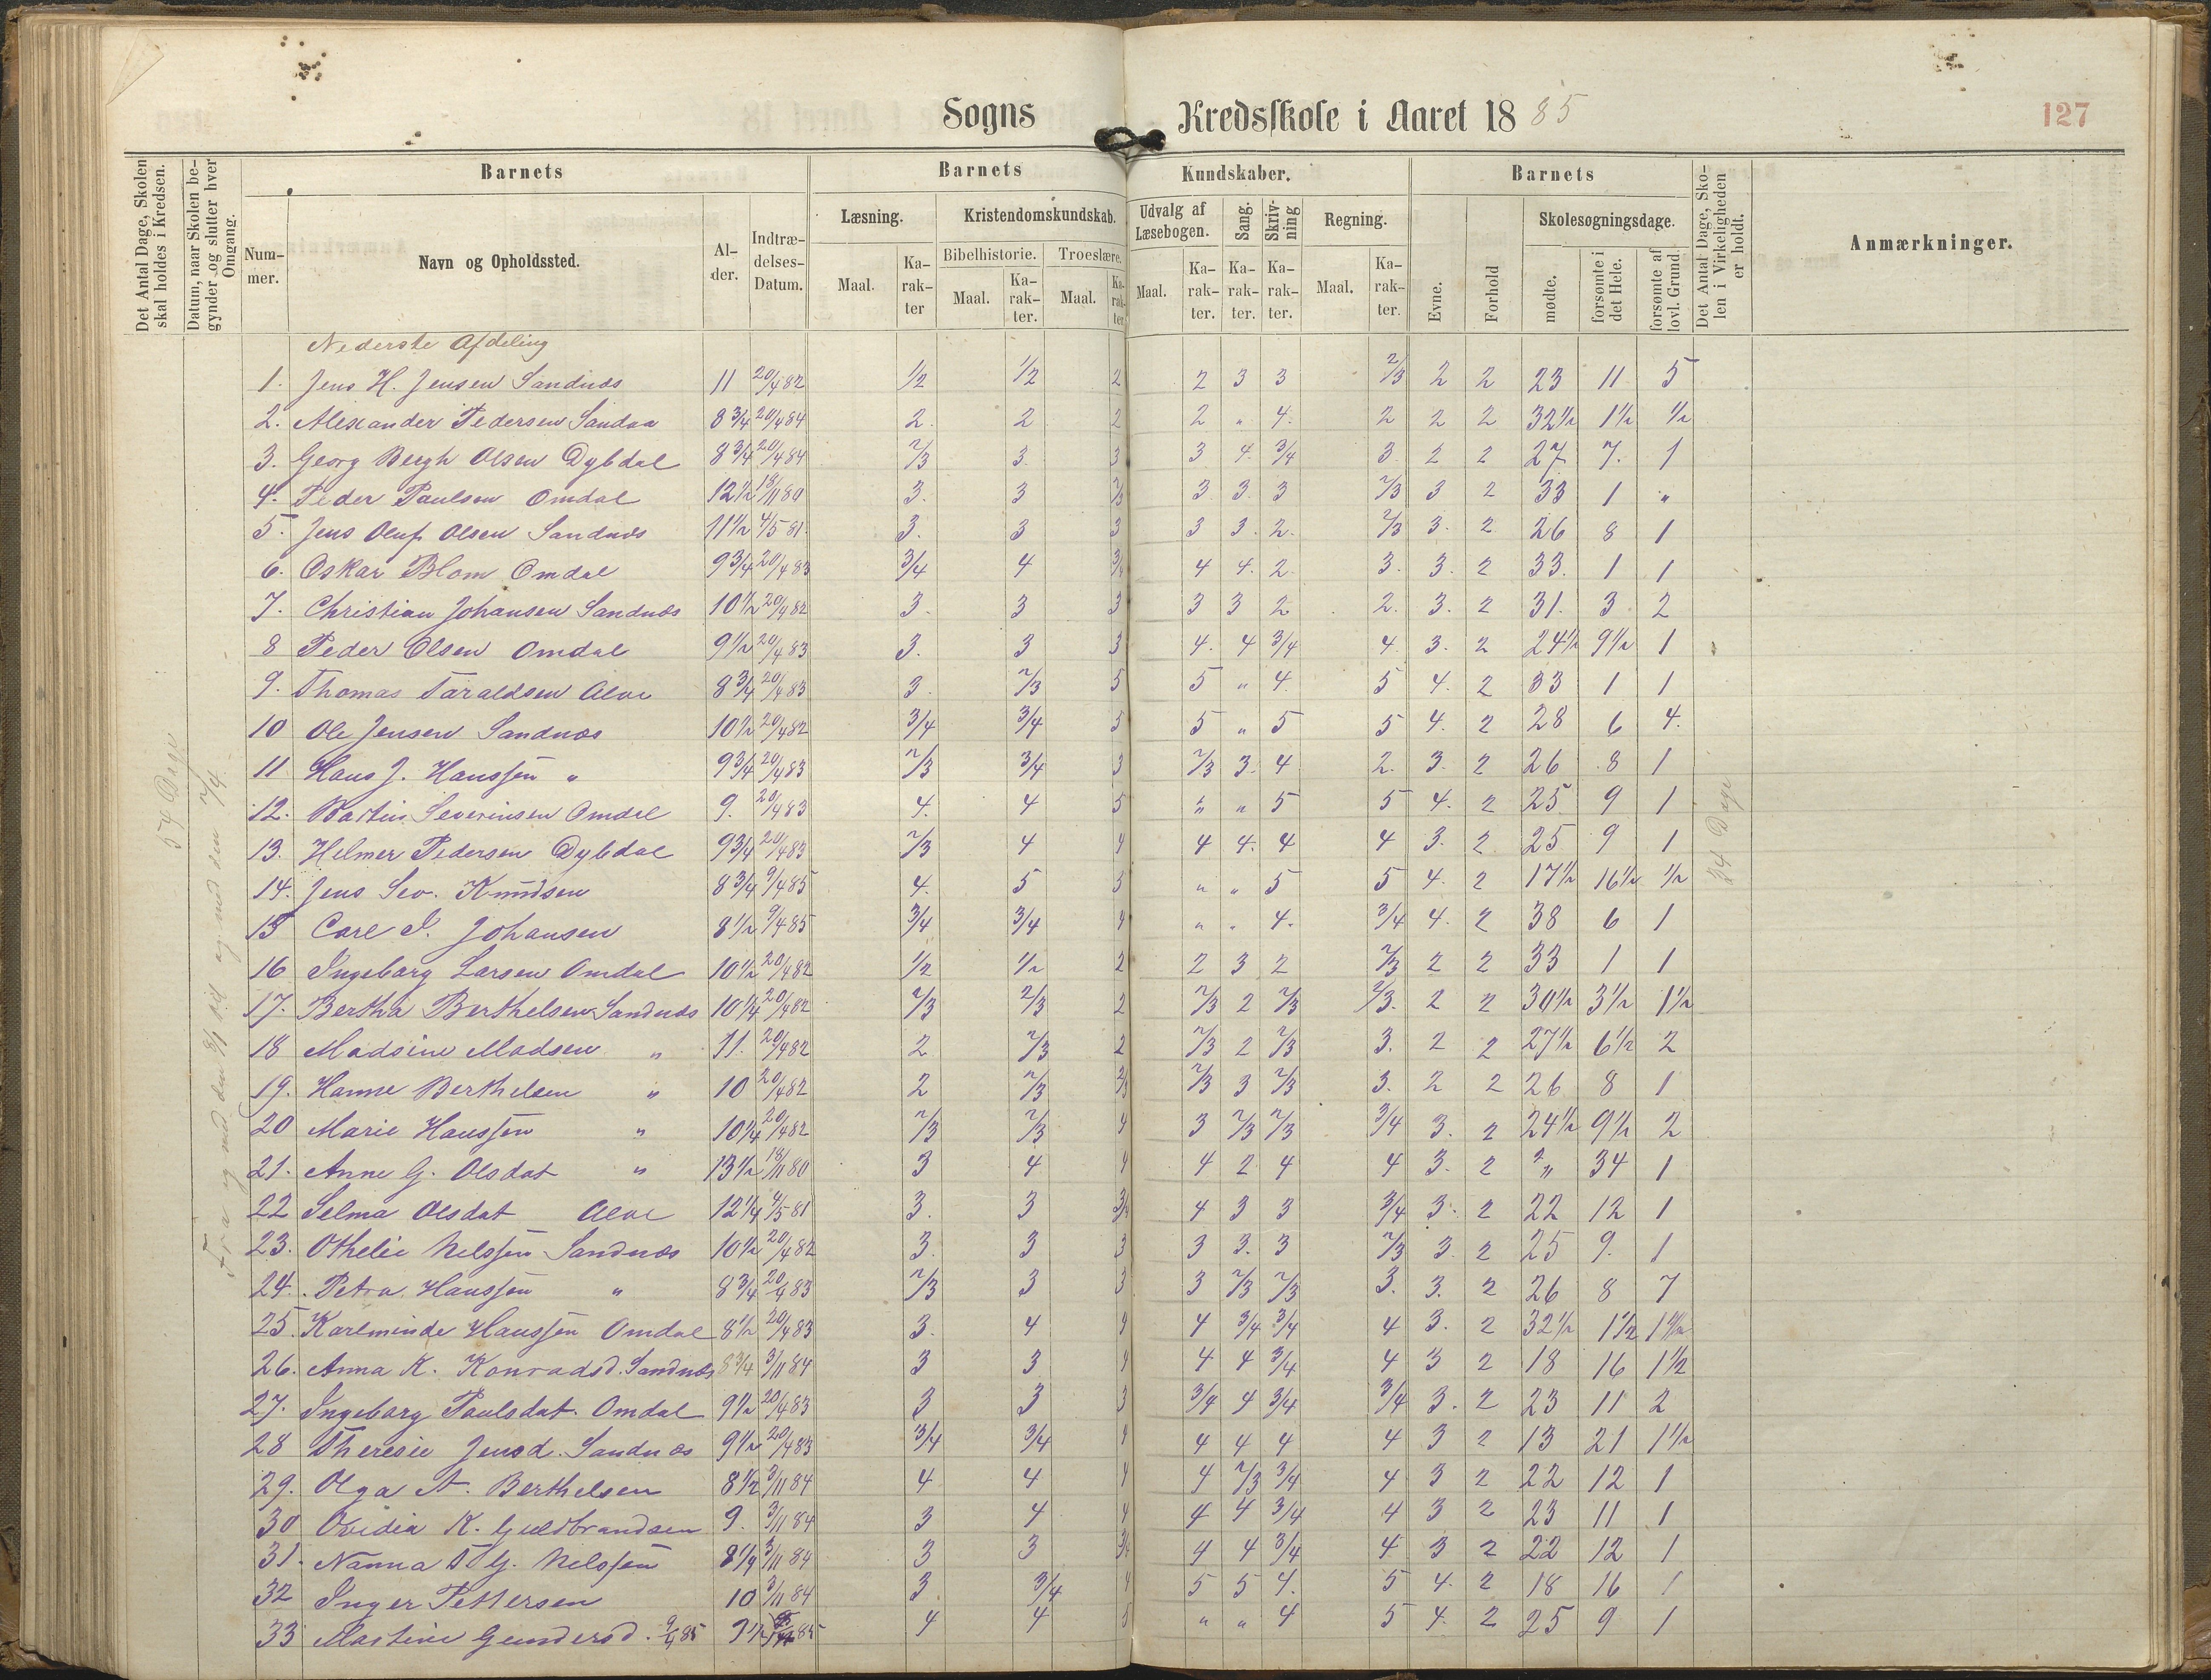 Sogns Kredsskole i Aaret 1885
127
Det Antal Dage, Skolen skal holdes i Kredsen.
Datum, naar Skolen begynder og slutter hver Omgang.
Barnets
Barnets Kundskaber.
Barnets
Det Antal Dage, Skolen i Virkeligheden er holdt.
Anmærkninger.
Nummer.
Navn og Opholdssted.
Alder.
Indtrædelses-Datum.
Læsning.
Kristendomskundskab.
Udvalg af Læsebogen.
Sang.
Skrivning
Regning.
Evne.
Forhold
Skolesøgningsdage.
Bibelhistorie.
Troeslære.
Maal.
Karakter
Maal.
Karakter.
Maal.
Karakter
Maal.
Karakter.
Karakter.
Karakter.
Maal.
Karakter.
mødte.
forsømte i det Hele.
forsømte af lovl. Grund.
54 Dage
34 Dage
Nederste Afdeling
1. Jens H. Jensen Sandnæs 11 20/4 82 1/2 1/2 2 2 3 3 2/3 2 2 23 11 5
2. Alexander Pedersen Sandaa 8 3/4 20/4 84 2. 2 2 2 " 4. 2 2 2 32 1/2 1 1/2 1/2
3. Georg Bergh Olsen Dybdal 8 3/4 20/4 84 2/3 3. 3 3 4. 3/4 3. 2 2 27 7. 1
4. Peder Paulsen Omdal 12 1/2 18/11 80 3. 3 2/3 3. 3. 3 2/3 3 2 33 1 "
5. Jens Oluf Olsen Sandnæs 11 1/2 4/5 81. 3. 3 3 3 3. 2. 2/3 3. 2 26 8 1
6. Oskar Blom Omdal 9 3/4 20/4 83 3/4 4 3/4 4 4. 2. 3. 3. 2 33. 1 1
7. Christian Johansen Sandnæs 10 1/2 20/4 82 3. 3 3 3 3 2 2. 3. 2 31. 3 2
8 Peder Olsen Omdal 9 1/2 20/4 83 3. 3 3 4. 4 3/4 4. 3. 2 24 1/2 9 1/2 1
9. Thomas Taraldsen Alve 8 3/4 20/4 83 3. 2/3 5 5 " 4. 5 4. 2 33 1 1
10 Ole Jensen Sandnæs 10 1/2 20/4 82 3/4 3/4 5 5 " 5 5 4. 2 28 6 4.
11 Hans J. Hanssen " 9 3/4 20/4 83 2/3 3/4 3 2/3 3. 4 2. 3. 2 26 8 1
12. Martin Severinsen Omdal 9. 20/4 83 4. 4 5 " " 5 5 4. 2 25 9 1
13. Helmer Pedersen Dybdal 9 3/4 20/4 83 2/3 4 4 4 4. 4 4 3. 2 25 9 1
14. Jens Sev. Knudsen 8 3/4 9/4 85 4. 5 5 " " 5 5 4. 2 17 1/2 16 1/2 1/2
15 Carl J. Johansen 8 1/2 9/4 85 3/4 3/4 4 " " 4. 3/4 4. 2 38 6 1
16 Ingeborg Larsen Omdal 10 1/2 20/4 82 1/2 1/2 2 2 3 2 2/3 2 2 33 1 1
17. Bertha Berthelsen Sandnæs 10 1/4 20/4 82 2/3 2/3 2 2/3 2 2/3 2/3. 2 2 30 1/2 3 1/2 1 1/2
18 Madsine Madsen " 11. 20/4 82 2 2/3 2 2/3 2 2/3 3. 2 2 27 1/2 6 1/2 2
19. Hanne Berthelsen " 10 20/4 82 2 2/3 2/3 2/3 3 2/3 3. 2 2 26 8 1
20 Marie Hanssen " 10 1/4 20/4 82 2/3 2/3 4 3 2/3 2/3 3/4 3. 2 24 1/2 9 1/2 2
21. Anne G. Olsdat " 13 1/2 18/11 80 3 4 4 4 2 4 4 3. 2 " 34 1
22 Selma Olsdat Alve 12 1/4 4/5 81 3. 3 3/4 4 3 3 3/4 3. 2 22 12 1
23. Othelie Nelssen Sandnæs 10 1/2 20/4 82 3. 3 3 3 3. 3 2/3 3. 2 25 9. 1
24. Petra Hanssen " 8 3/4 20/4 83 2/3 3 3 3 2/3 2/3 3. 3. 2 26 8 7
25. Karlminde Hanssen Omdal 8 1/2 20/4 83 3. 4 4 4 3/4 3/4 4 3. 2 32 1/2 1 1/2 1 1/2
26. Anna K. Konradsd. Sandnæs 8 3/4 3/11 84 3 3 4 4 4 3/4 4 3 2 18 16 1 1/2
27. Ingeborg Paulsdat. Omdal 9 1/2 20/4 83 3 3 3 3/4 4 3/4 3/4 3. 2 23 11 2
28 Theresie Jensd. Sandnæs 9 1/2 20/4 83 3/4 3/4 4 4 4 4 4 3 2 13 21 1 1/2
29. Olga A. Berthelsen 8 1/2 3/11 84 4 4 4 4 2/3 3/4 4 3 2 22 12 1
30 Ovidia K. Guldbrandsen 9. 3/11 84 3 4 4 4 4 3/4 4 3 2 23 11 1
31. Nanna T. G. Nelssen 8 1/4 3/11 84 3 3 3/4 4 4 3/4 4 3 2 22 12 1
32 Inger Pettersen 10 3/11 84 3 3/4 4 5 5 4. 5 4. 2 18 16 1
33 Mastine Gundersd. 9/4 85 9 1/2 85 4 4 5 " " 4 5 4. 2 25 9 1